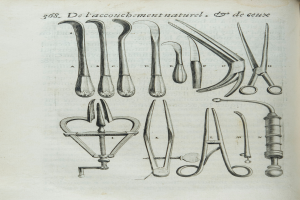 368. De l'accouchement naturel, & de ceux